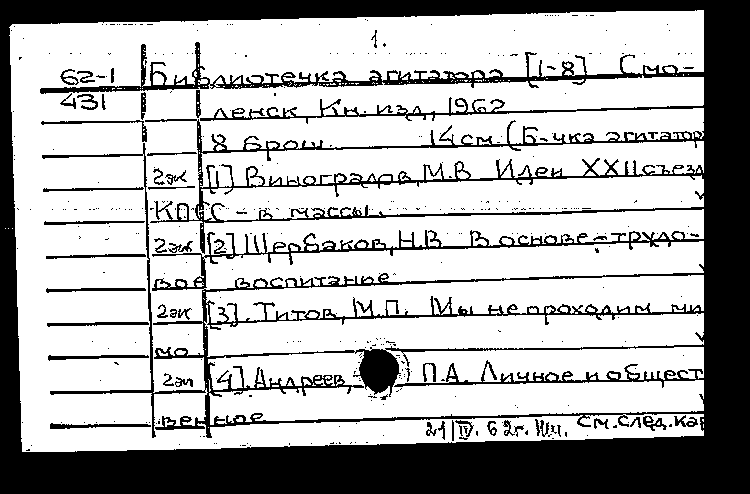 1.
62-1 Библиотечка агитатора [1-8] Смо-
431 ленск, Кн. изд., 1962
8 брош. 14 см. (Б-чка агитатор
2эк [1] Виноградов, М.В. Идеи XXII съезд
КПСС - в массы.
2эк [2] Щербаков, Н.В. В основе - трудо-
вое воспитание
2эк [3]. Титов, М.П. Мы не проходим ми
мо
2эк [4]. Андреев, П.А. Личное и общест
венное
21/IV. 62г. см. след. кар